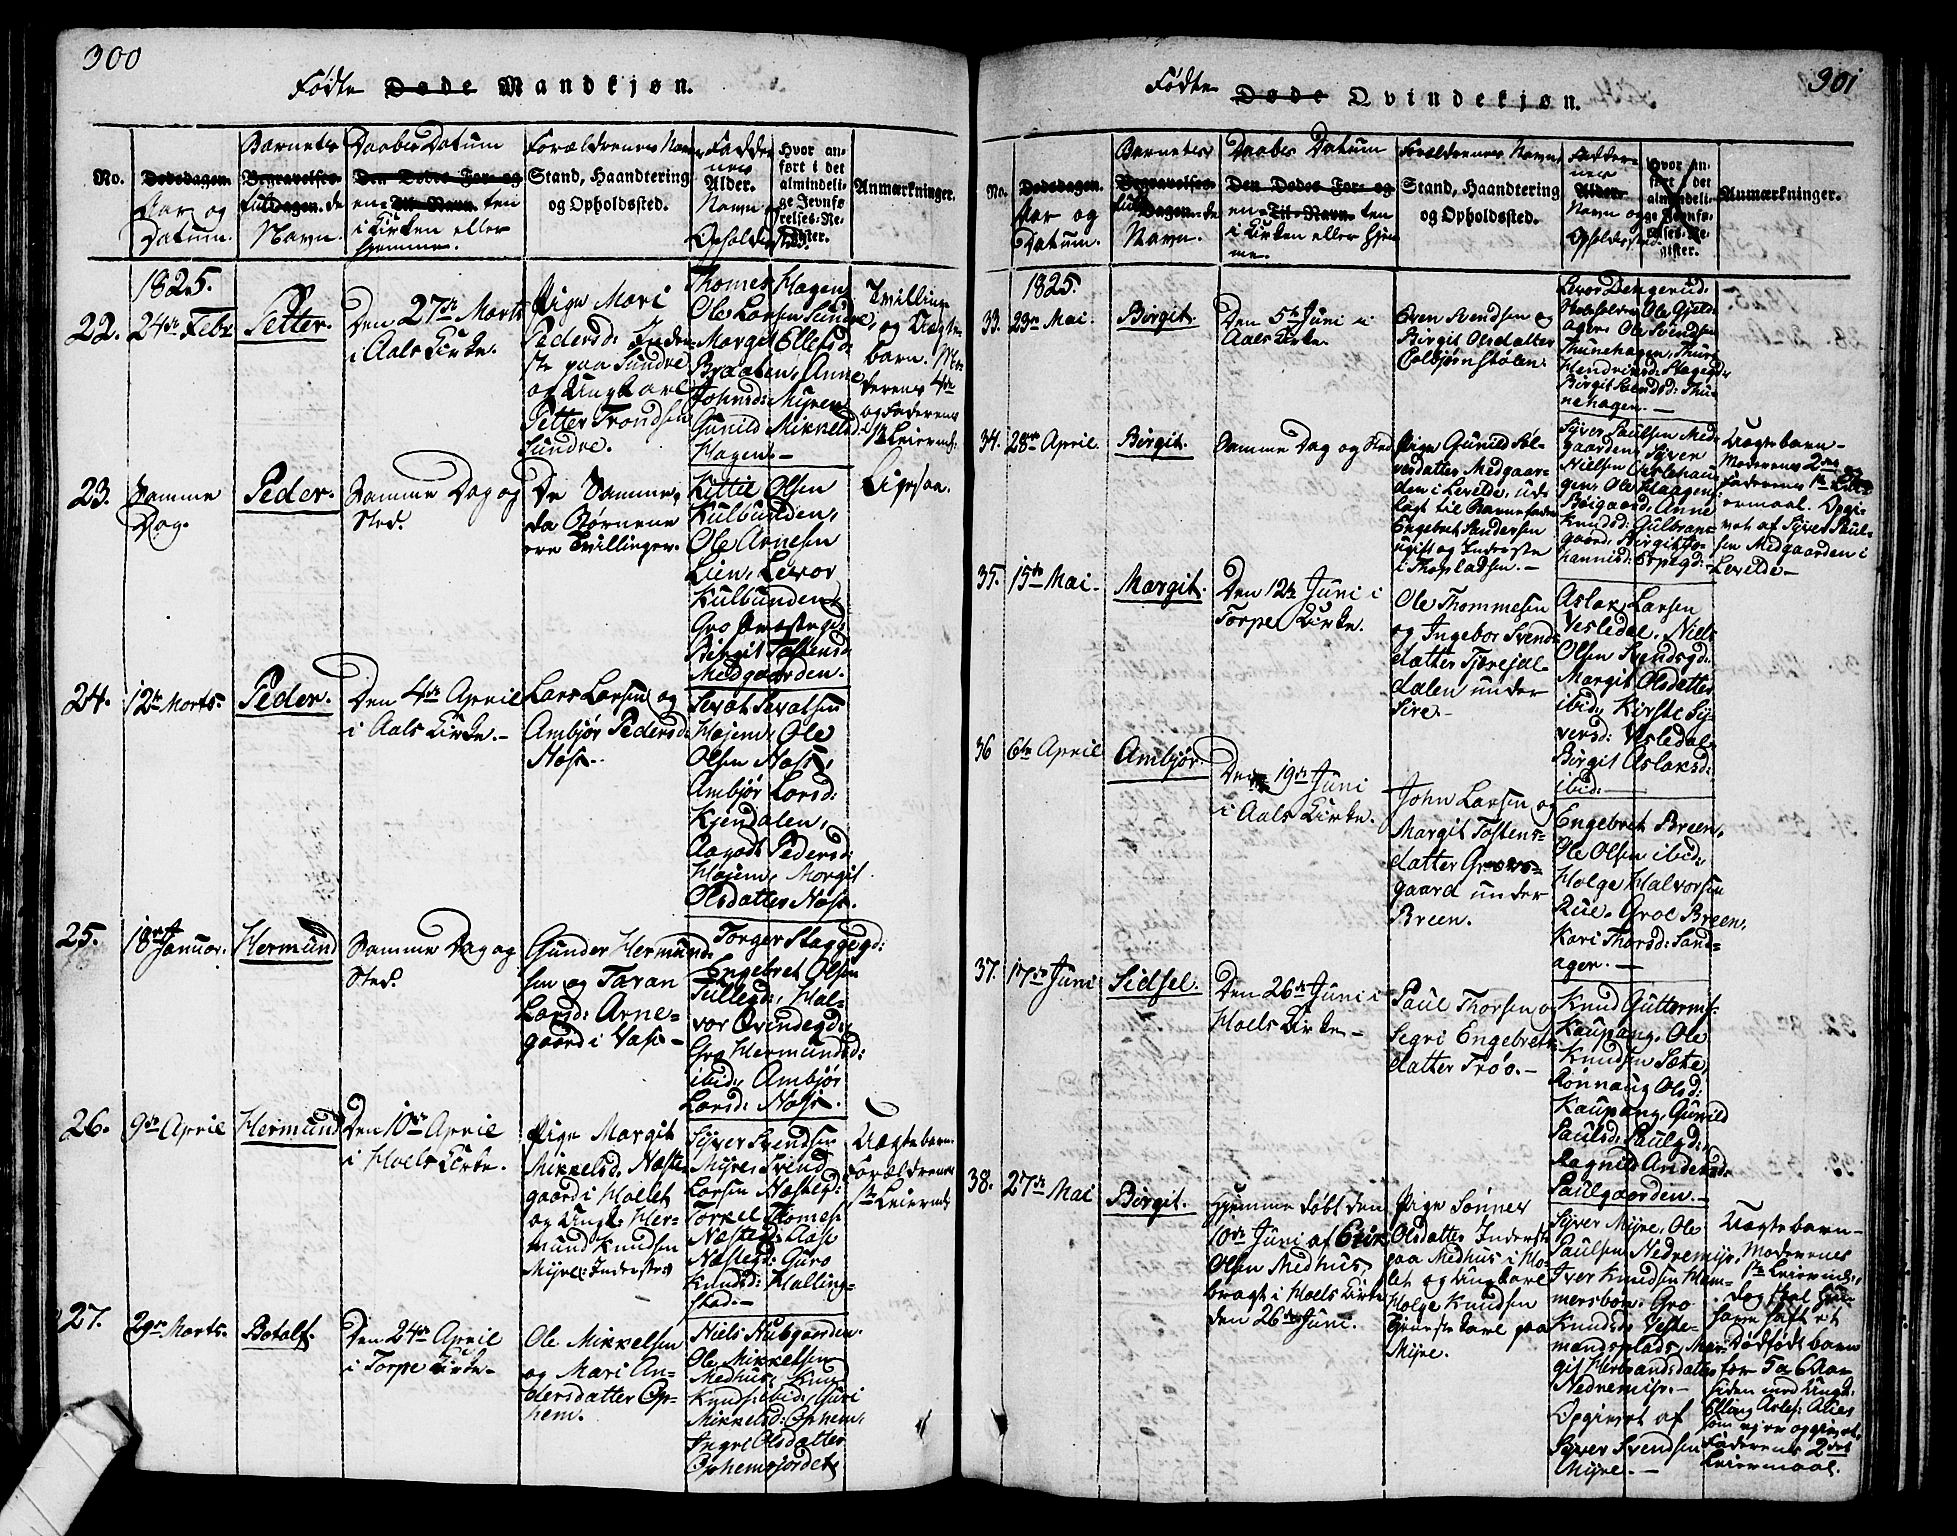 300
Fødte Døde Mandkjøn.
No.
Dødsdagen.
Aar og
Datum.
Barnets
Begravelses-
fulde Dagen.
Navn.
Daabes Datum
Den Dødes For- og
en Til-Navn ten
i Kirken eller
hjemme.
Forældrenes Navn
Stand, Haandtering
og Opholdssted.
Fadder
nes
Alder.
Navn og
Opholdssted.
Hvor an-
ført i det
almindeli-
ge Jevnfø-
relses-Re-
gister.
Anmærkninger.
1825.
22.
24de Febr
Petter.
Den 27de Marts
i Aals Kirke.
Pige Mari
Pedersd: Inder-
ste paa Sundre
og Ungkarl
Petter Trondsen
Sundre.
Thomes Hagen,
Ole Larsen Sundre,
Margit Ellefsd:
Braaten, Anne
Johnsd: Myren,
Gunild Mikkelsd:
Hagen.
Tvilling
og Uægte
barn. Mo-
derens 4de
og Faderens
1te Leierm:
23.
Samme
Dag.
Peder.
Samme Dag og
Sted.
De Samme,
da Børnene
ere Tvillinger.
Kittil Olsen
Kulbunden,
Ole Arnesen
Lien, Levor
Kulbunden,
Gro Præstegd:
Birgit Tostensd:
Medgaarden.
Ligesaa.
24.
12te Marts.
Peder.
Den 4de April
i Aals Kirke.
Lars Larsen og
Ambjør Pedersd:
Noss.
Sevat Sevatsen
Højem, Ole
Olsen Noss,
Ambjør Larsd:
Kjendalen,
Aagodt Pedersd:
Højem, Margit
Olsdatter Noss.
25.
18de Januar.
Hermund
Samme Dag og
Sted.
Gunder Hermund-
sen og Taran
Larsd: Arne-
gaard i Vass
Torger Staggegd:
Engebret Olsen
Tullegd, Hal-
vor Qvindegd,
Gro Hermundsd:
ibid, Ambjør
Larsd: Noss.
26.
9de April
Hermund
Den 10de April
i Hoels Kirke.
Pige Margit
Mikkelsd. Næste-
gaard i Hollet
og Ungk: Her-
mund Knudsen
Myre: Inderster
Syver Svendsen
Myre, Svend
Larsen Næstegd:
Torkel Thomes:
Næstegd: Aase
Næstegd: Guro
Knudsd: Halling-
stad.
Uægte barn
Forældrenes
1te Leiermd
27.
29de Marts.
Botolf.
Den 24de April
i Torpe Kirke
Ole Mikkelsen
og Mari An-
dersdatter Op-
hem.
Niels Nubgaarden.
Ole Mikkelsen
Medhus, Knud
Knudse: ibid, Guri
Mikkelsd: Ophem,
Ingri Olsdatter
Ophemsjordet
301
Fødte Døde Qvindekjøn.
No.
Dødsdagen.
Aar og
Datum.
Barnetes
Begravelses-
fulde Dagen.
Navn.
Daabes Datum
Den Dødes For- og
en Til-Navn ten
i Kirken eller hjem
me.
Forældrenes Navn,
Stand, Haandtering
og Opholdssted.
Fadder-
nes
Alder.
Navn og
Opholdssted.
Hvor an-
ført i det
almindeli-
ge Jevnfø-
relses-Re-
gister.
Anmærkninger.
1825.
33.
23de Mai.
Birgit.
Den 5te Juni i
Aals Kirke.
Even Svendsen og
Birgit Olsdatter
Colbjørnstølen.
34.
28de April.
Birgit.
Samme Dag og Sted
Pige Gunild Søl-
vesdatter Medgaar-
den i Leveld, ud-
lagt til Barnefader
Engebret Andersen
ugift og Inderste
i Thopladsen.
Syver Paulsen Med-
gaarden, Syver
Nielsen
Bøigaard, Anne
Knudsd: Gulbran-
gaard, Birgit Jo-
hannisd: Erpegd:
Uægte barn
Moderens 2det
Faderens 1te Lei-
ermaal. Opgi-
vet af Syver Paul-
sen Medgaarden i
Levelde
35.
15de Mai
Margit.
Den 12te Juni i
Torpe Kirke.
Ole Thommesen
og Ingebor Svends-
datter
dalen under
Sire.
Aslak Larsen
Vesledal, Niels
Olsen Svendsgd:
Margit Olsdatter
ibid, Kirste Sy-
versd: Vesledal
Birgit Aslaksd:
ibid:
36
6te April
Ambjør.
Den 19de Juni
i Aals Kirke.
John Larsen og
Margit Tostens-
datter
gaard under
Breen.
Engebret Breen,
Ole Olsen ibid:,
Holge Halvorsen
Rue, Groe Breen,
Kari Thorsd: Sand-
ager.
37.
17de Juni
Sidsel.
Den 26de Juni i
Hoels Kirke
Paul Thorsen o
Segri Engebrets-
datter Trøo.
Knud Guttormse.
Kaupang, Ole
Knudsen Sæte,
Rønnaug Olsd:
Kaupang, Gunild
Paulsd: Paulgd:
Ragnild Andersd:
Paulgaarden.
38.
27de Mai
Birgit.
Hjemme døbt den
10de Juni af Erik
Olsen Medhus,
bragt i Hoels Kirke
den 26de Juni.
Pige Sønnev
Olsdatter Inderste
paa Medhus i Ho-
let og Ungkarl
Holge Knudsen
tjeneste karl paa
Myre.
Syver Myre, Ole
Paulsen Nedremyr,
Iver Knudsen Ham-
mersbøen, Gro
Knudsd: Veste-
mandsplads, Mar-
git Herbrandsdatter
Nedremyr.
Opgivet af
Syver Svendsen
Myre.
Uægte barn
Moderens
1te Leiermd,
dog skal hun
have født et
Dødfødt barn
for 5 a 6 Aar
siden med Ungk:
Elling Arles: Aaes
som ej er opgivet,
Faderens 2det
Leiermaal.